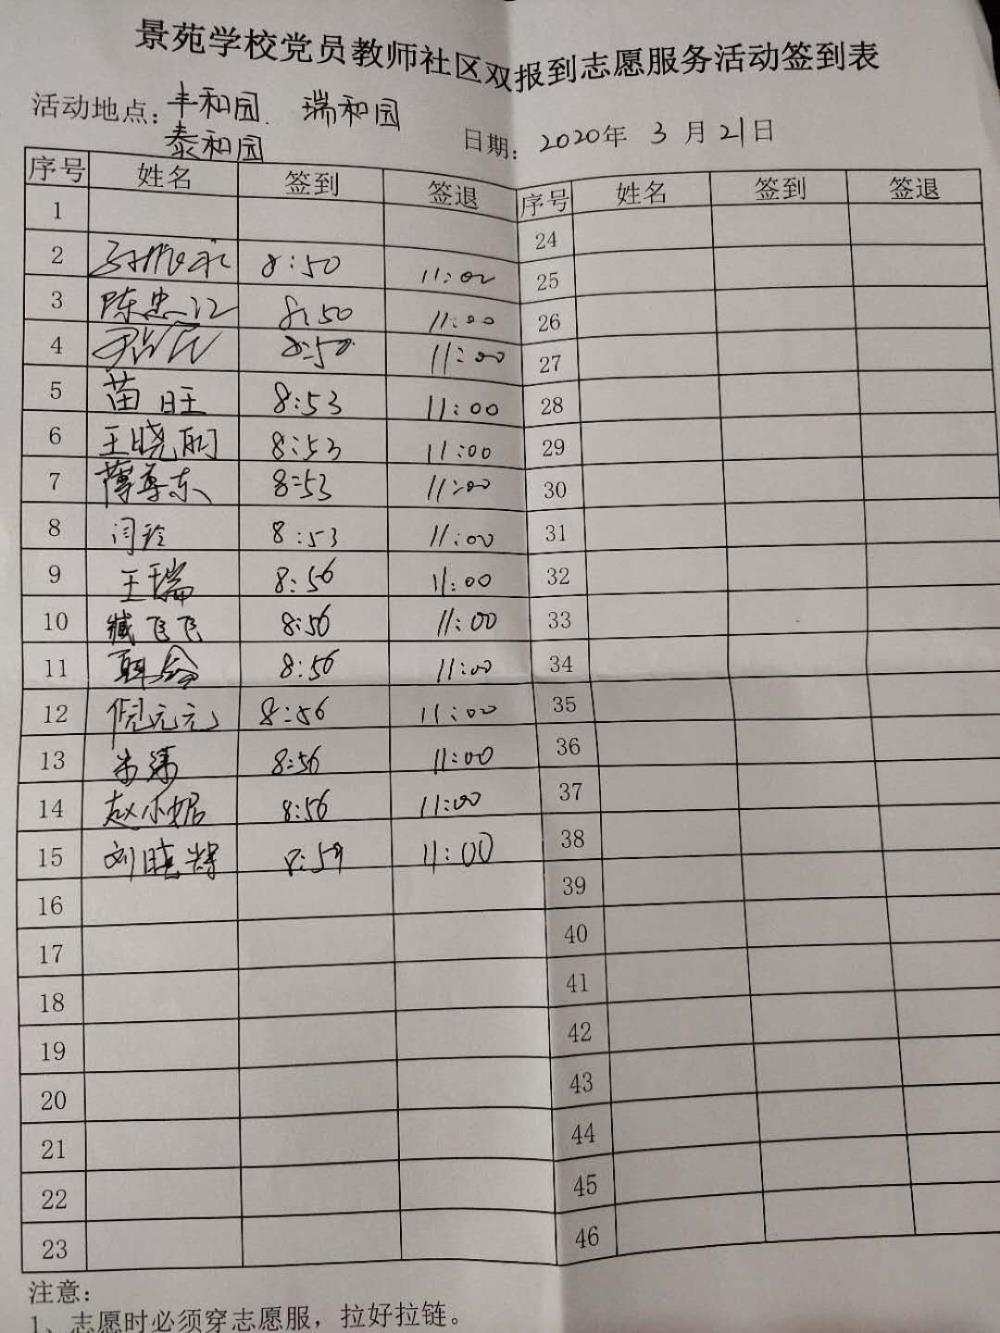 景苑学校党员教师社区双报到志愿服务活动签到表
活动地点：丰和园 瑞和园
泰和园
日期：2020年 3 月 21日
序号 姓名 签到 签退 序号 姓名 签到 签退
1 24
2 8:50 11:00 25
3 陈忠江 8:50 11:00 26
4 8:50 11:00 27
5 苗旺 8:53 11:00 28
6 王晓丽 8:53 11:00 29
7 薄尊东 8:53 11:00 30
8 闫玲 8:53 11:00 31
9 王瑞 8:56 11:00 32
10 臧飞飞 8:56 11:00 33
11 8:56 11:00 34
12 倪元元 8:56 11:00 35
13 8:56 11:00 36
14 赵小妮 8:56 11:00 37
15 刘晓辉 8:59 11:00 38
16 39
17 40
18 41
19 42
20 43
21 44
22 45
23 46
注意：
1、志愿时必须穿志愿服，拉好拉链。